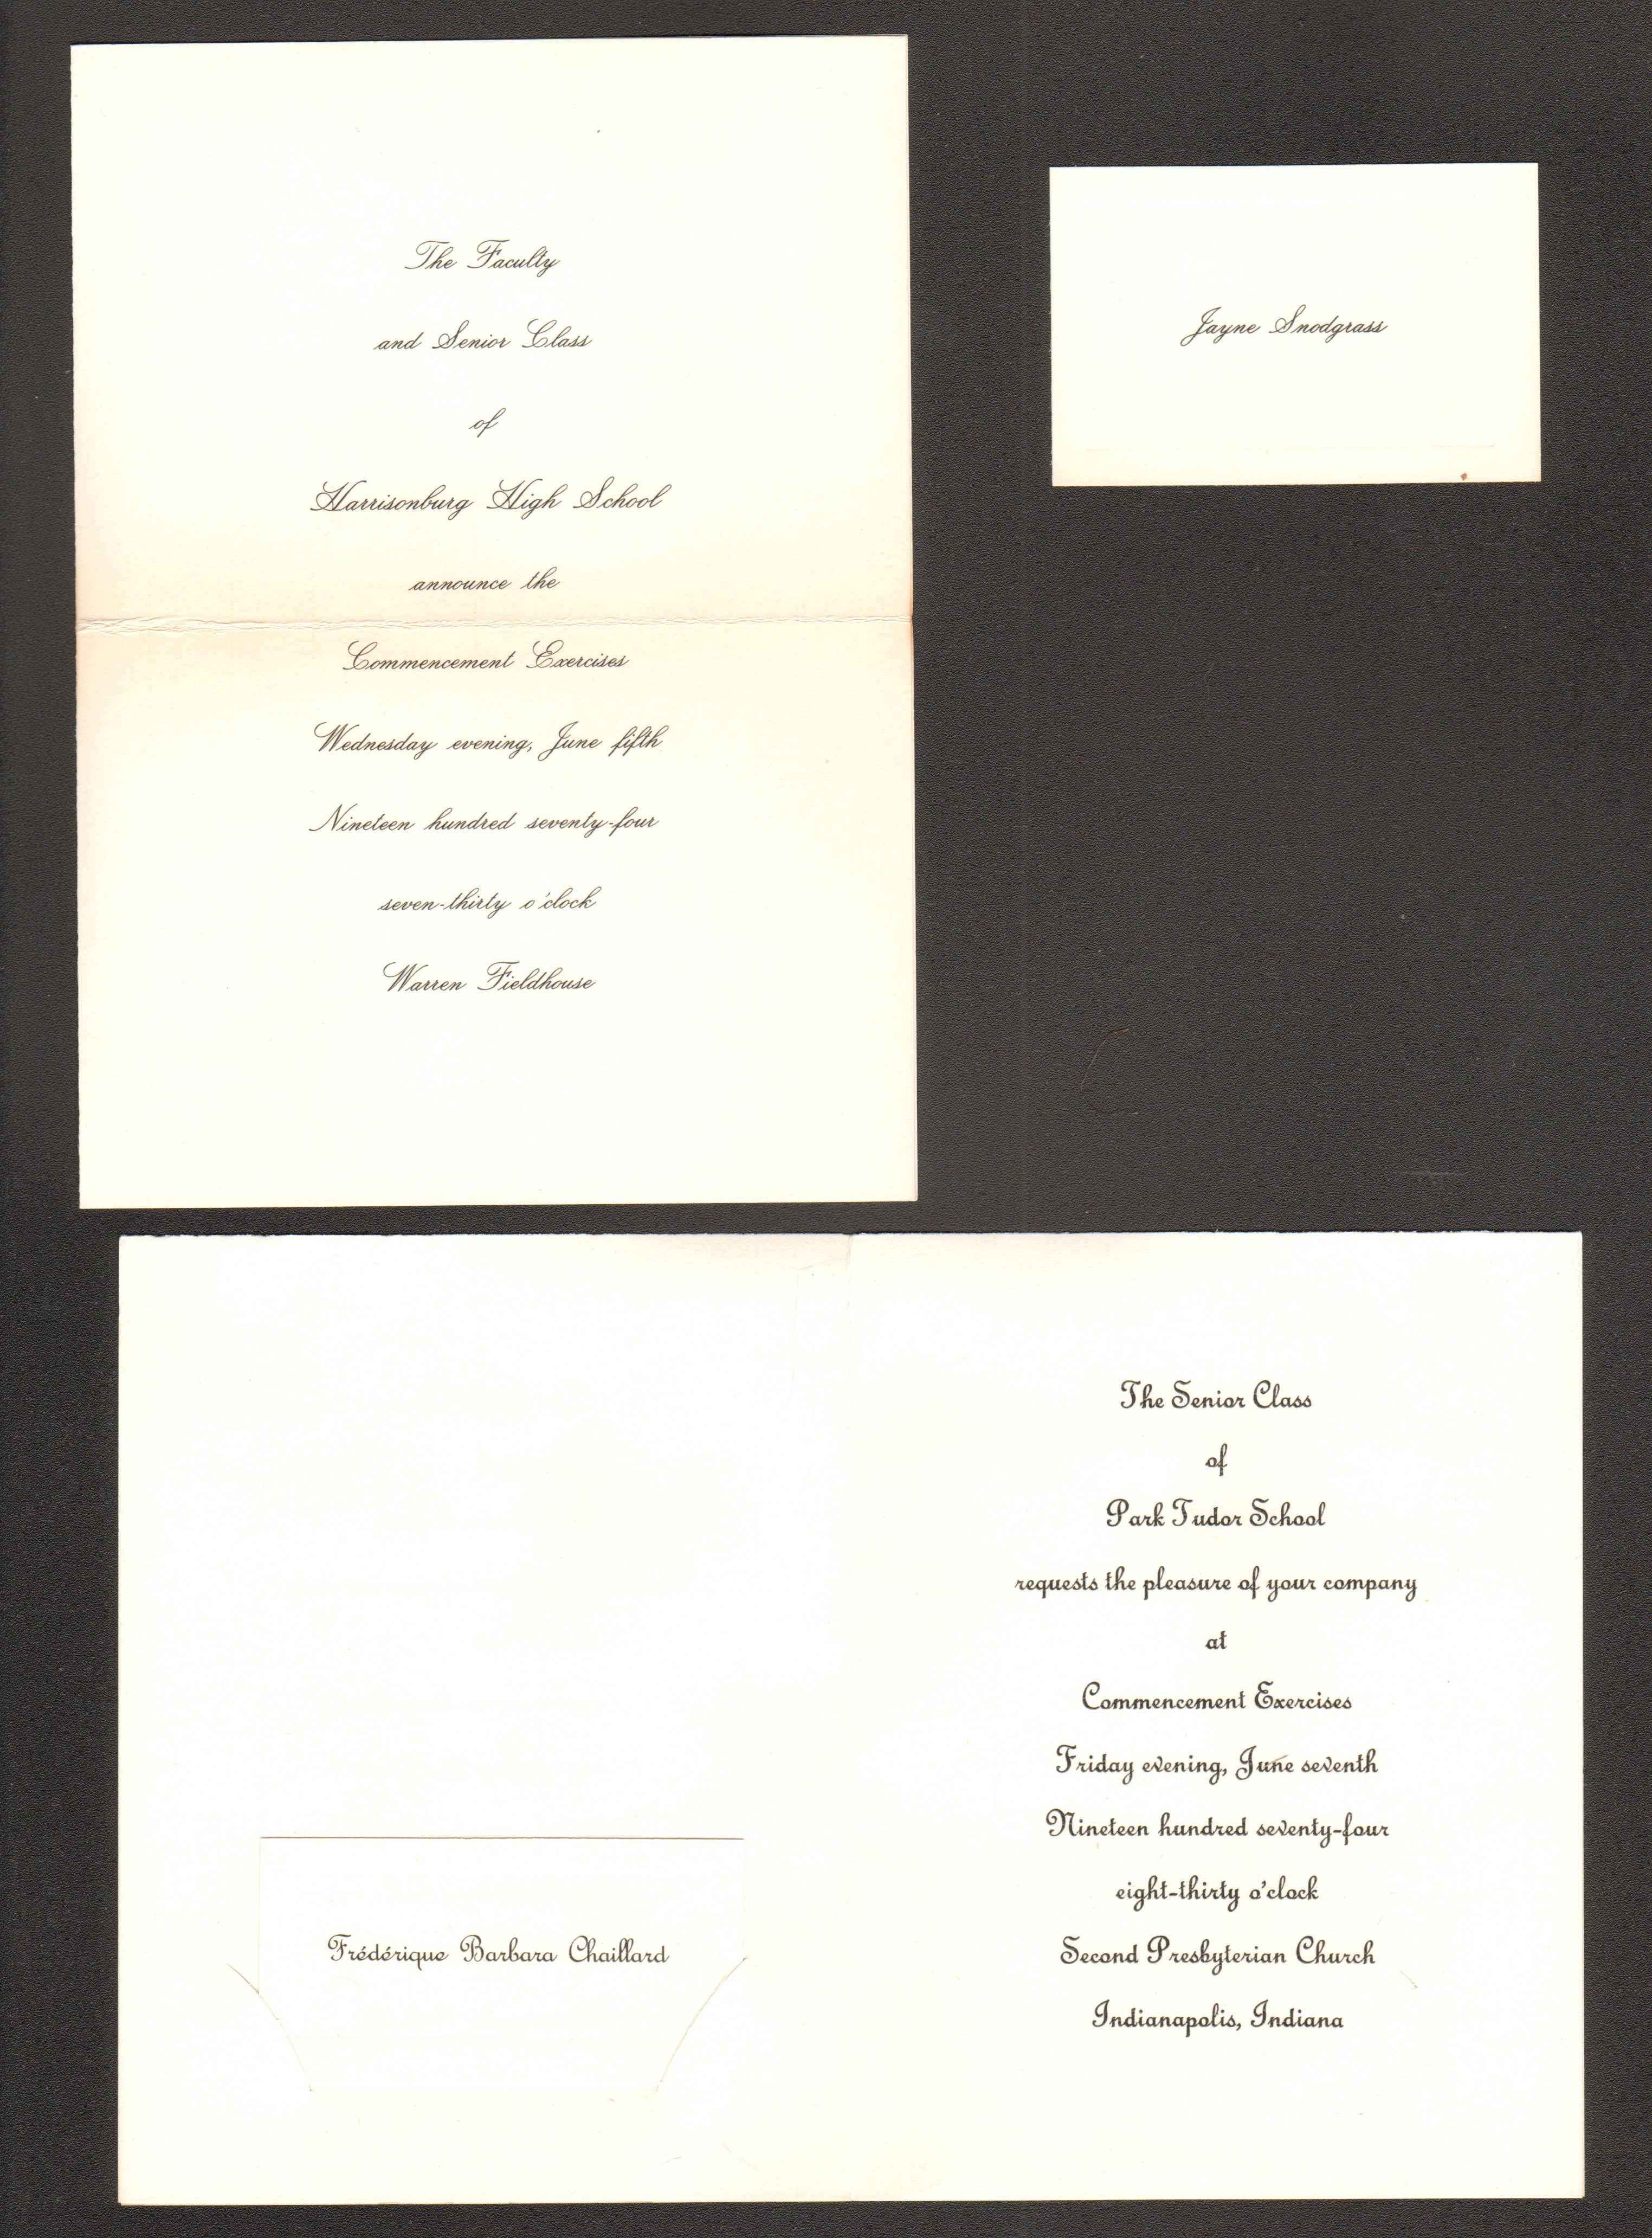 The Faculty
and Senior Class
of
Harrisonburg High School
announce the
Commencement Exercises
Wednesday evening, June fifth
Nineteen hundred seventy-four
seven-thirty o'clock
Warren Fieldhouse
Jayne Snodgrass
Frédérique Barbara Chaillard
The Senior Class
of
Park Tudor School
requests the pleasure of your company
at
Commencement Exercises
Friday evening, June seventh
Nineteen hundred seventy-four
eight-thirty o'clock
Second Presbyterian Church
Indianapolis, Indiana